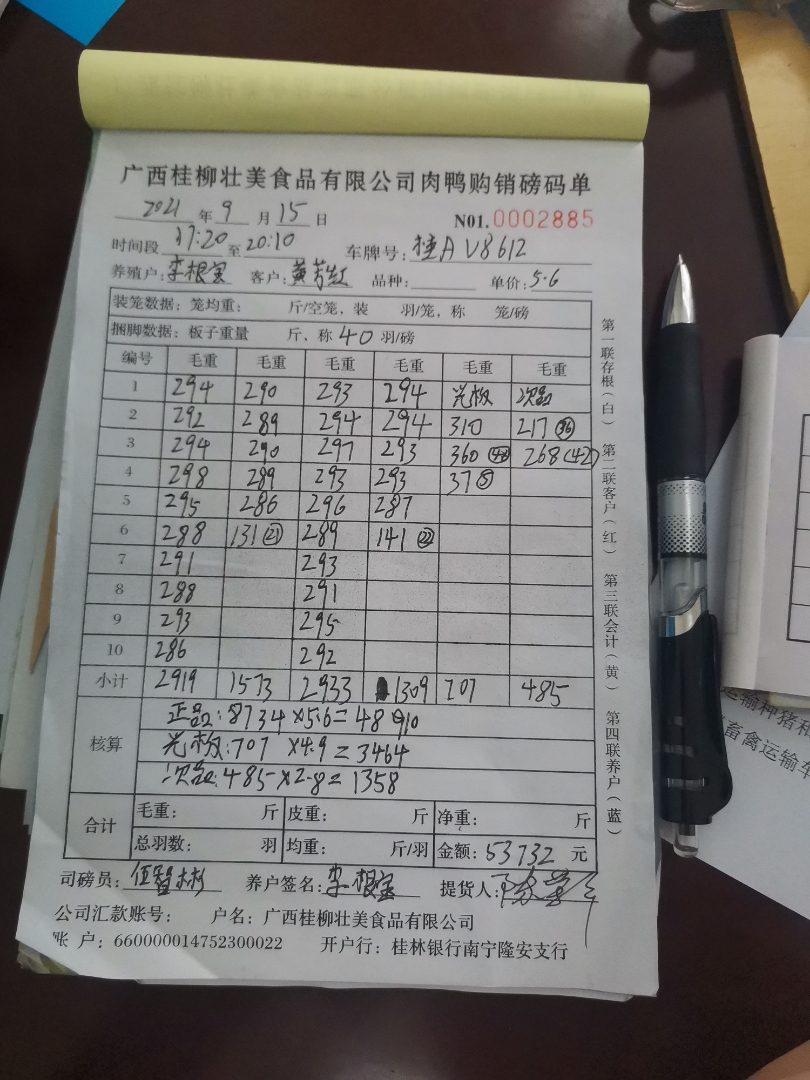 广西桂柳壮美食品有限公司肉鸭购销磅码单
2021 年 9 月 15 日 N01.0002885
时间段 17:20 至 20:10 车牌号: 桂A V8612
养殖户: 李根宝 客户: 黄芳红 品种: 单价: 5.6
装笼数据: 笼均重: 斤/空笼, 装 羽/笼, 称 笼/磅
捆脚数据: 板子重量 斤, 称 40 羽/磅
编号 毛重 毛重 毛重 毛重 毛重 毛重
1 294 290 293 294 光板 次品
2 292 289 294 294 310 217 (36)
3 294 290 297 293 360 (48) 268 (42)
4 298 289 293 293 37 (5)
5 295 286 296 287
6 288 131 (21) 289 141 (22)
7 291 293
8 288 291
9 293 295
10 286 292
小计 2919 1573 2933 1309 707 485
核算
正品: 8734 ×5.6= 48910
光板: 707 ×4.9 = 3464
次品: 485×2.8= 1358
合计
毛重: 斤 皮重: 斤 净重: 斤
总羽数: 羽 均重: 斤/羽 金额: 53732 元
司磅员: 养户签名: 李根宝 提货人:
公司汇款账号: 户名: 广西桂柳壮美食品有限公司
账 户: 660000014752300022 开户行: 桂林银行南宁隆安支行
第一联存根(白) 第二联客户(红) 第三联会计(黄) 第四联养户(蓝)
运输种猪和
畜禽运输车